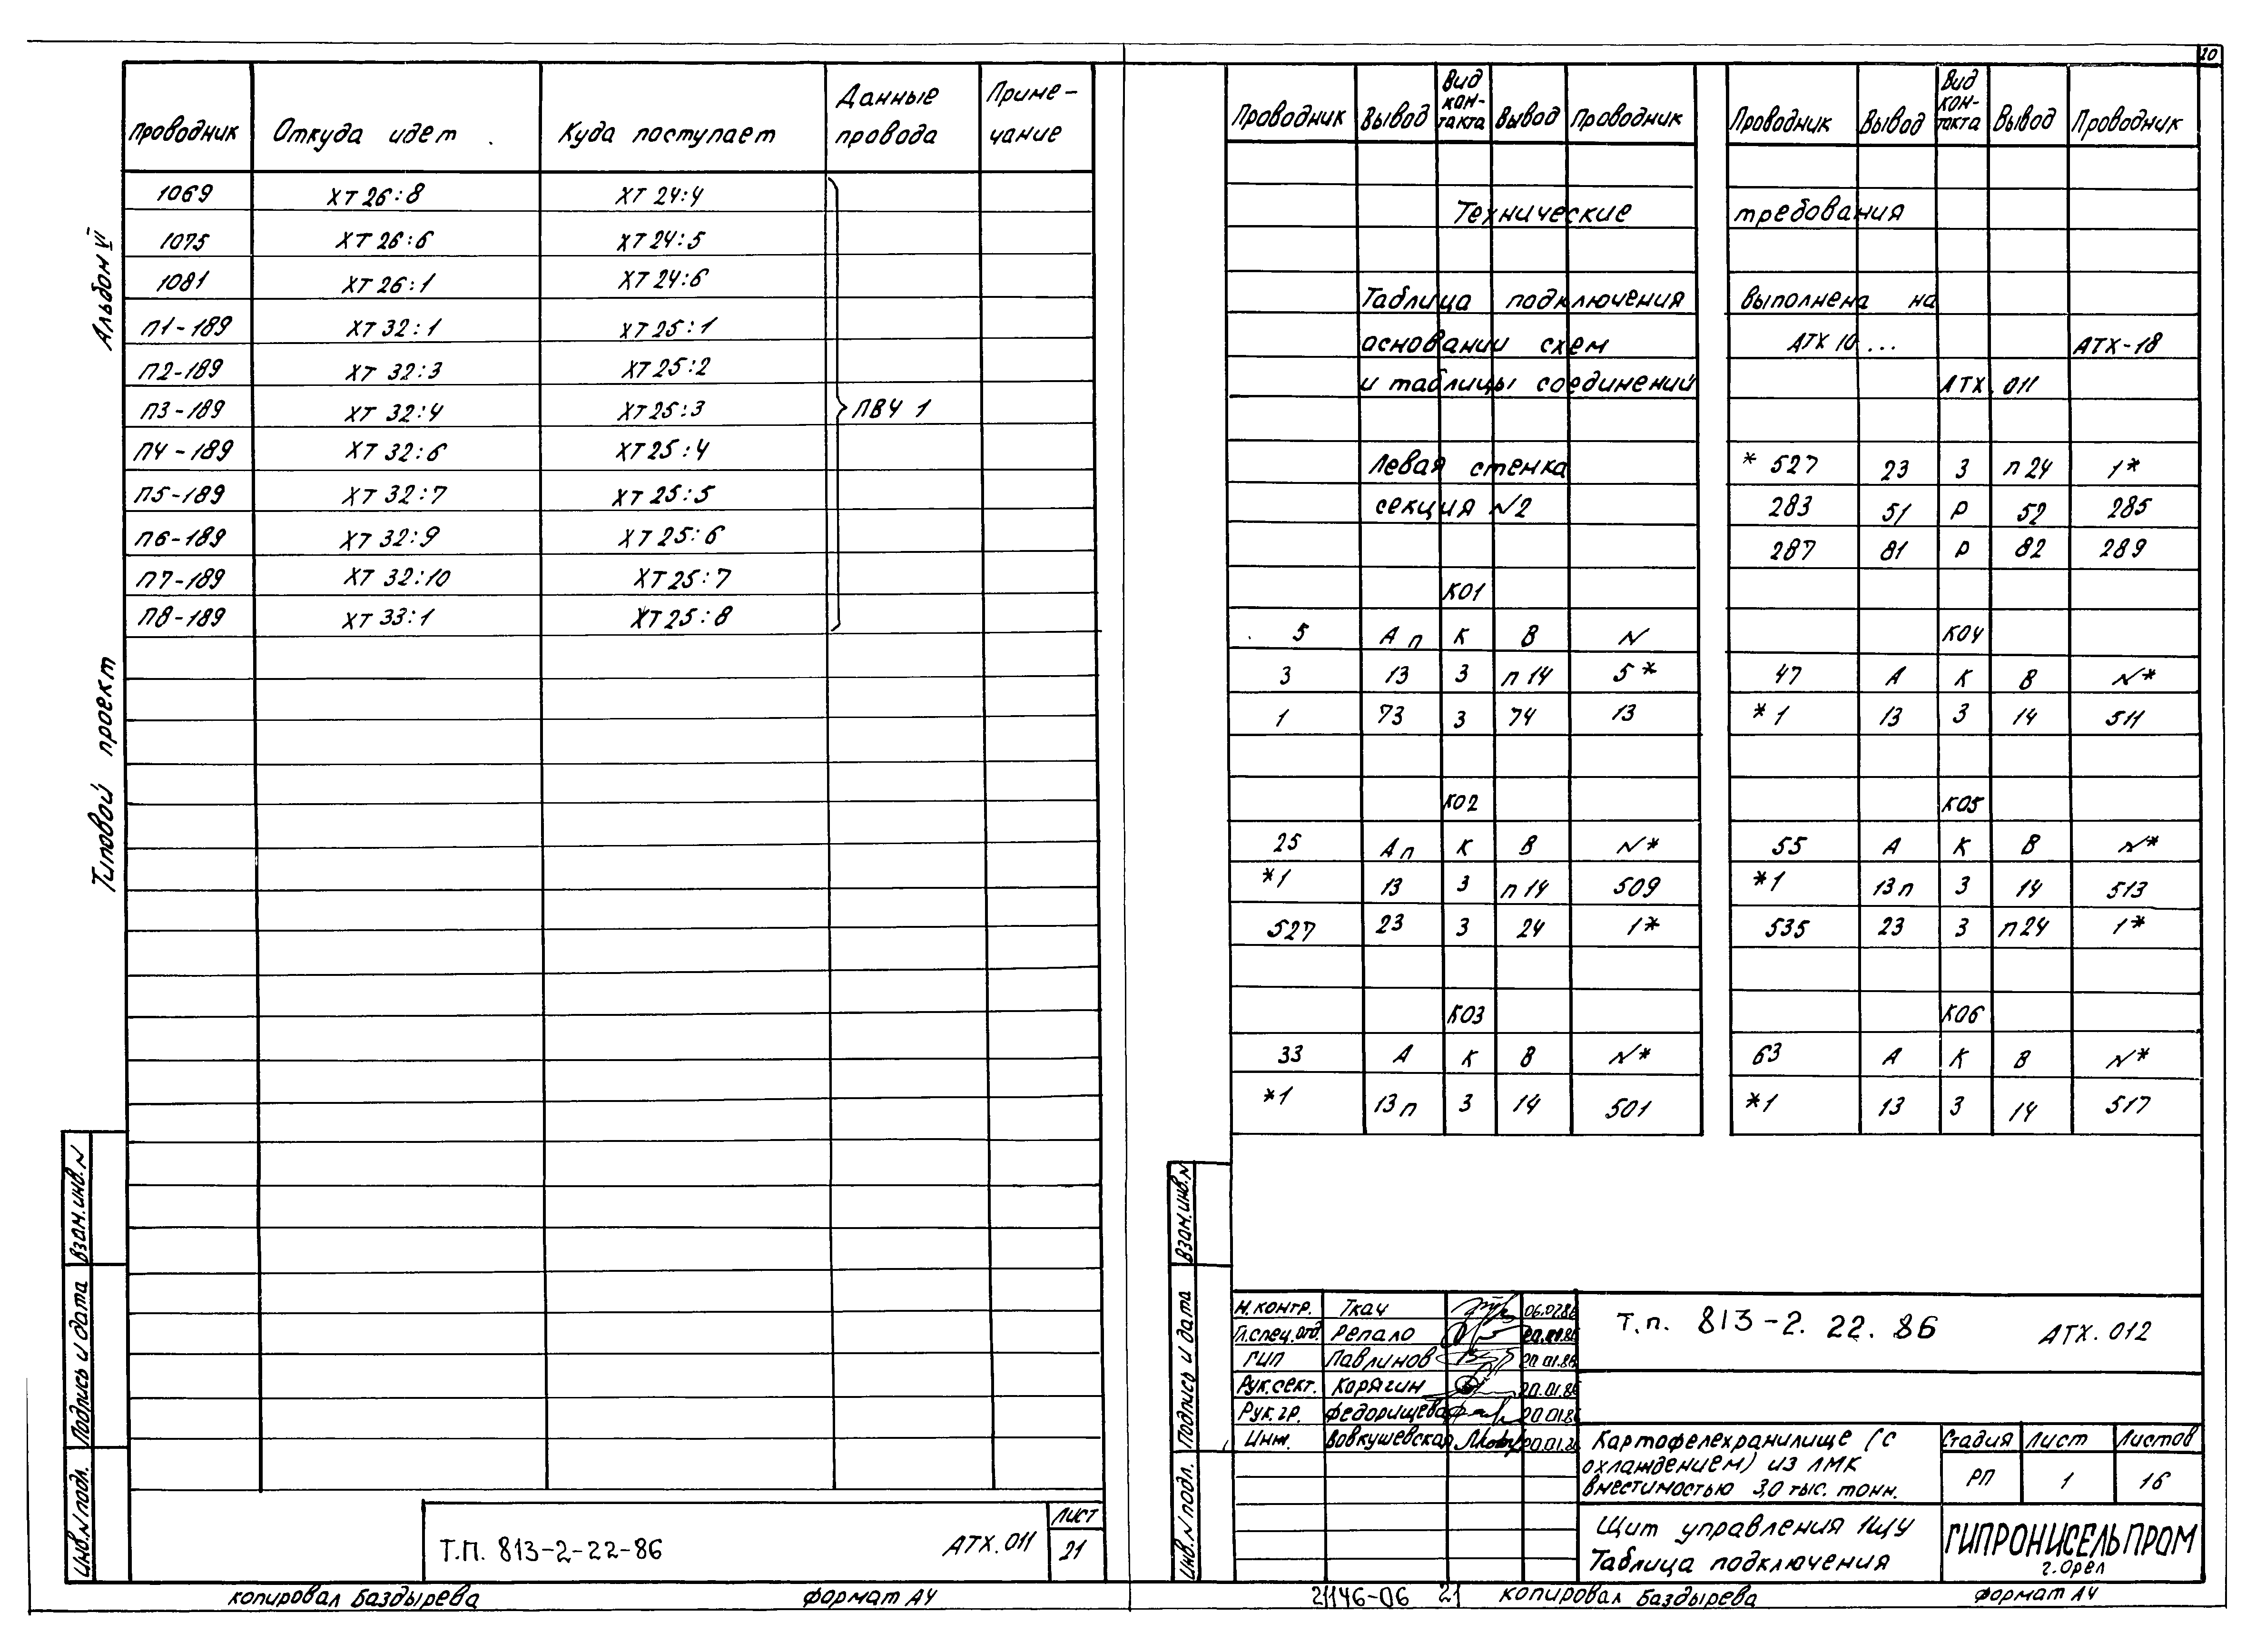 20
Альбом VI
Типовой проект
Проводник Откуда идет Куда поступает Данные провода Приме-чание
1069 ХТ 26:8 ХТ 24:4
1075 ХТ 26:6 ХТ 24:5
1081 ХТ 26:1 ХТ 24:6
П1-189 ХТ 32:1 ХТ 25:1
П2-189 ХТ 32:3 ХТ 25:2
П3-189 ХТ 32:4 ХТ 25:3 ПВЧ 1
П4-189 ХТ 32:6 ХТ 25:4
П5-189 ХТ 32:7 ХТ 25:5
П6-189 ХТ 32:9 ХТ 25:6
П7-189 ХТ 32:10 ХТ 25:7
П8-189 ХТ 33:1 ХТ 25:8
Взам.инв.N
Подпись и дата
Инв.N подл.
Т.П. 813-2-22-86 АТХ.011
Лист
21
копировал Баздырева формат А4
Проводник Вывод Вид кон-такта Вывод Проводник
Технические требования
Таблица подключения выполнена на
основании схем АТХ 10 ... АТХ-18
и таблицы соединений АТХ.011
Левая стенка
секция N2
К01
5 А п К В N
3 13 З п 14 5*
1 73 З 74 13
К02
25 А п К В N*
*1 13 З п 14 509
527 23 З 24 1*
К03
33 А К В N*
*1 13 п З 14 501
Проводник Вывод Вид кон-такта Вывод Проводник
*527 23 З п 24 1*
283 51 Р 52 285
287 81 Р 82 289
К04
47 А К В N*
*1 13 З 14 511
К05
55 А К В N*
*1 13 п З 14 513
535 23 З п 24 1*
К06
63 А К В N*
*1 13 З 14 517
Взам.инв.N
Подпись и дата
Инв.N подл.
Н.контр. Ткач 06.02.86
Гл.спец.отд. Репало 20.01.86
ГИП Павлинов 20.01.86
Рук.сект. Карягин 20.01.86
Рук.гр. Федорищева 20.01.86
Инж. Вовкушевская 20.01.86
Т.п. 813-2.22.86 АТХ.012
Картофелехранилище (с
охлаждением) из ЛМК
вместимостью 3,0 тыс. тонн.
Стадия Лист Листов
РП 1 16
Щит управления 1ЩУ
Таблица подключения
ГИПРОНИСЕЛЬПРОМ
г.Орел
21146-06 21 копировал Баздырева формат А4